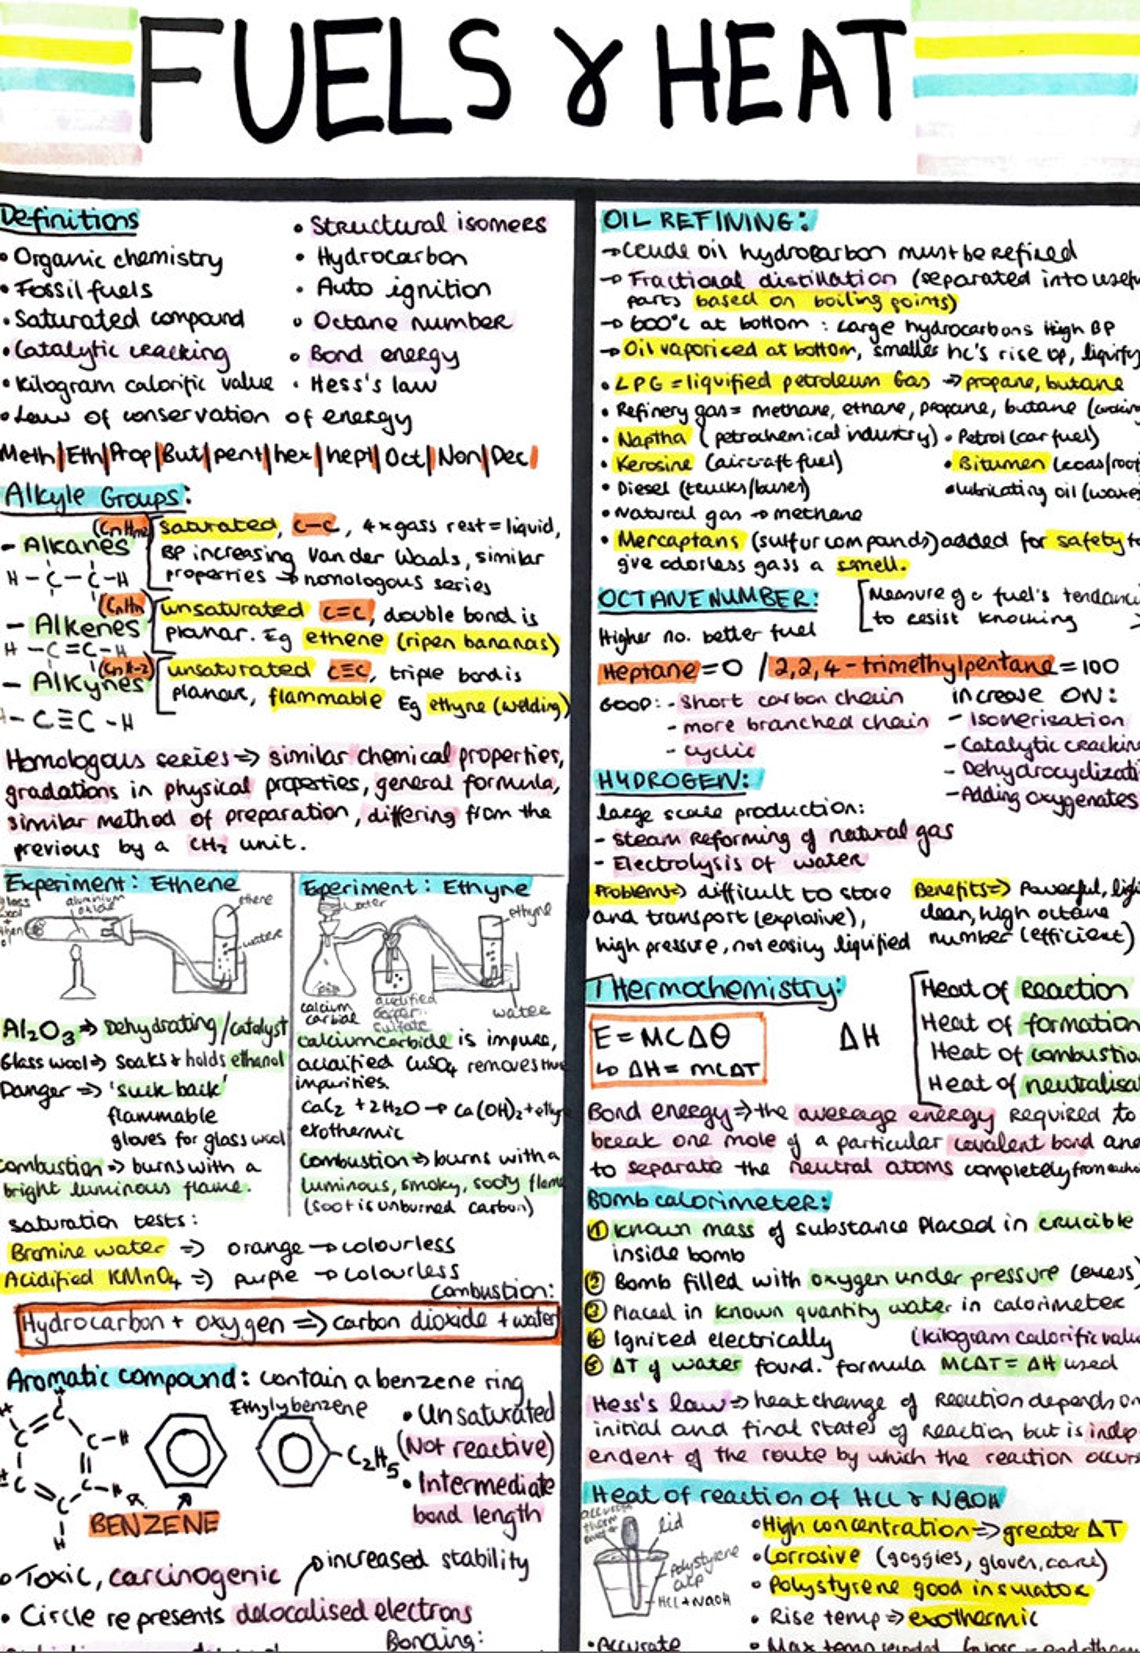 FUELS & HEAT
Definitions
• Organic chemistry
• Fossil fuels
• Saturated compound
• Catalytic cracking
• Kilogram calorific value
• Law of conservation of energy
• Structural isomers
• Hydrocarbon
• Auto ignition
• Octane number
• Bond energy
• Hess's law
Meth|Eth|Prop|But|pent|hex|hept|Oct|Non|Dec|
Alkyle Groups:
- Alkanes
saturated, C-C, 4 x gass rest = liquid,
BP increasing Van der Waals, similar
properties → homologous series
H - C - C - H
(CnHn)
- Alkenes
unsaturated C=C, double bond is
planar. Eg ethene (ripen bananas)
H - C = C - H
- Alkynes
unsaturated C≡C, triple bond is
planar, flammable Eg ethyne (welding)
- C≡C - H
Homologous series => similar chemical properties,
gradations in physical properties, general formula,
similar method of preparation, differing from the
previous by a CH2 unit.
Experiment: Ethene
aluminium
oxide
ethene
water
Al2O3 → Dehydrating/catalyst
Glass wool => soaks & holds ethanol
Danger => 'suck back'
flammable
gloves for glass wool
combustion => burns with a
bright luminous flame.
Experiment: Ethyne
water
ethyne
calcium
carbide
acidified
copper
sulfate
water
calcium carbide is impure,
acidified CuSO4 removes
impurities.
CaC2 + 2H2O → Ca(OH)2 + ethyne
exothermic
Combustion => burns with a
luminous, smoky, sooty flame
(soot is unburned carbon)
saturation tests:
Bromine water => orange → colourless
Acidified KMnO4 => purple → colourless
Combustion:
Hydrocarbon + oxygen => carbon dioxide + water
Aromatic compound: contain a benzene ring
Ethylybenzene
C2H5
BENZENE
• Unsaturated
(Not reactive)
• Intermediate
bond length
• Toxic, carcinogenic
increased stability
• Circle represents delocalised electrons
Bonding:
OIL REFINING:
→ Crude oil hydrocarbon must be refined
→ Fractional distillation (separated into usef
parts based on boiling points)
→ 600°c at bottom : Large hydrocarbons High BP
→ Oil vaporiced at bottom, smaller hc's rise up, liquify
• LPG = liquified petroleum Gas → propane, butane
• Refinery gas = methane, ethane, propane, butane
• Naptha (petrochemical industry) • Petrol (car fuel)
• Kerosine (aircraft fuel) • Bitumen (roads/roof
• Diesel (trucks/buses) • lubricating oil (waxes
• Natural gas → methane
• Mercaptans (sulfur compounds) added for safety to
give odorless gass a smell.
OCTANE NUMBER:
Measure of a fuel's tendanc
to resist knocking
Higher no. better fuel
Heptane = 0 / 2,2,4 - trimethylpentane = 100
GOOD: - Short carbon chain
- more branched chain
- cyclic
increase ON:
- Isomerisation
- Catalytic crackin
- Dehydrocyclizati
- Adding oxygenates
HYDROGEN:
large scale production:
- Steam Reforming of natural gas
- Electrolysis of water
Problems => difficult to store
and transport (explosive),
high pressure, not easily liquified
Benefits => Powerful, ligh
clean, high octane
number (efficient)
Thermochemistry:
E = MCΔθ
↳ ΔH = MCΔT
ΔH
Heat of Reaction
Heat of formation
Heat of combustio
Heat of neutralisa
Bond energy => the average energy required to
break one mole of a particular covalent bond and
to separate the neutral atoms completely from
Bomb calorimeter:
① Known mass of substance placed in crucible
inside bomb
② Bomb filled with oxygen under pressure (excess)
③ Placed in known quantity water in calorimeter
④ Ignited electrically (kilogram calorific valu
⑤ ΔT of water found. formula MCΔT = ΔH used
Hess's law => heat change of Reaction depends on
initial and final states of reaction but is indep
endent of the route by which the reaction occurs
Heat of reaction of HCl & NaOH
lid
Polystyrene
cup
HCl + NaOH
• High concentration => greater ΔT
• Corrosive (goggles, gloves, care)
• Polystyrene good insulator
• Rise temp => exothermic
• Accurate